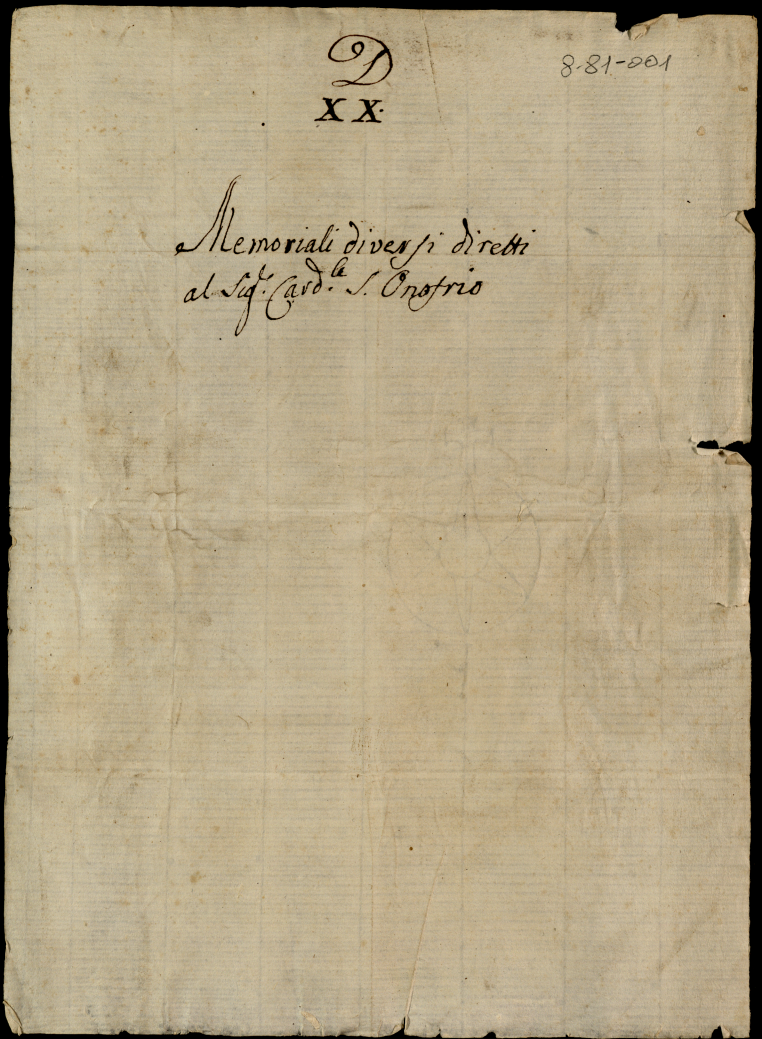 D
8-81-001
XX.
Memoriali diversi diretti
al Sig.r Card.le S. Onofrio